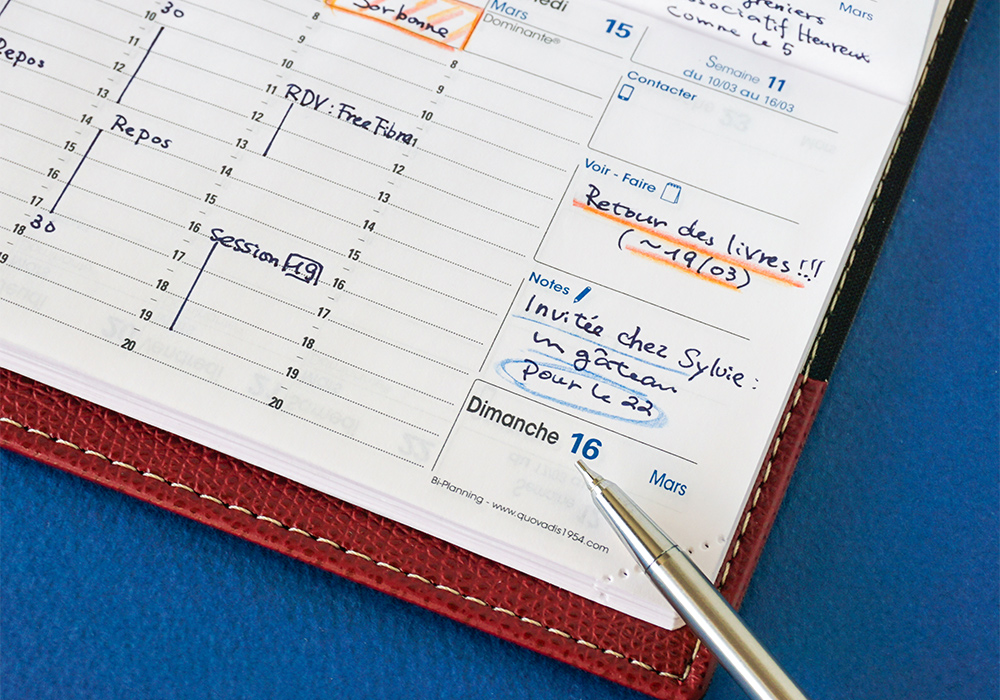 30
10
11
12
13
14
15
16
17
18
19
Repos
Repos
30
8
9
10
11
12
13
14
15
16
17
18
19
20
Sorbonne
RDV: Free Fibre
session 19
Mars
Dominante®
15
8
9
10
11
12
13
14
15
16
17
18
19
20
comme le 5
Mars
Semaine 11
du 10/03 au 16/03
Contacter
Voir - Faire
Retour des livres !!!
(~19/03)
Notes
Invitée chez Sylvie :
un gâteau
pour le 22
Dimanche 16
Mars
Bi-Planning - www.quovadis1954.com